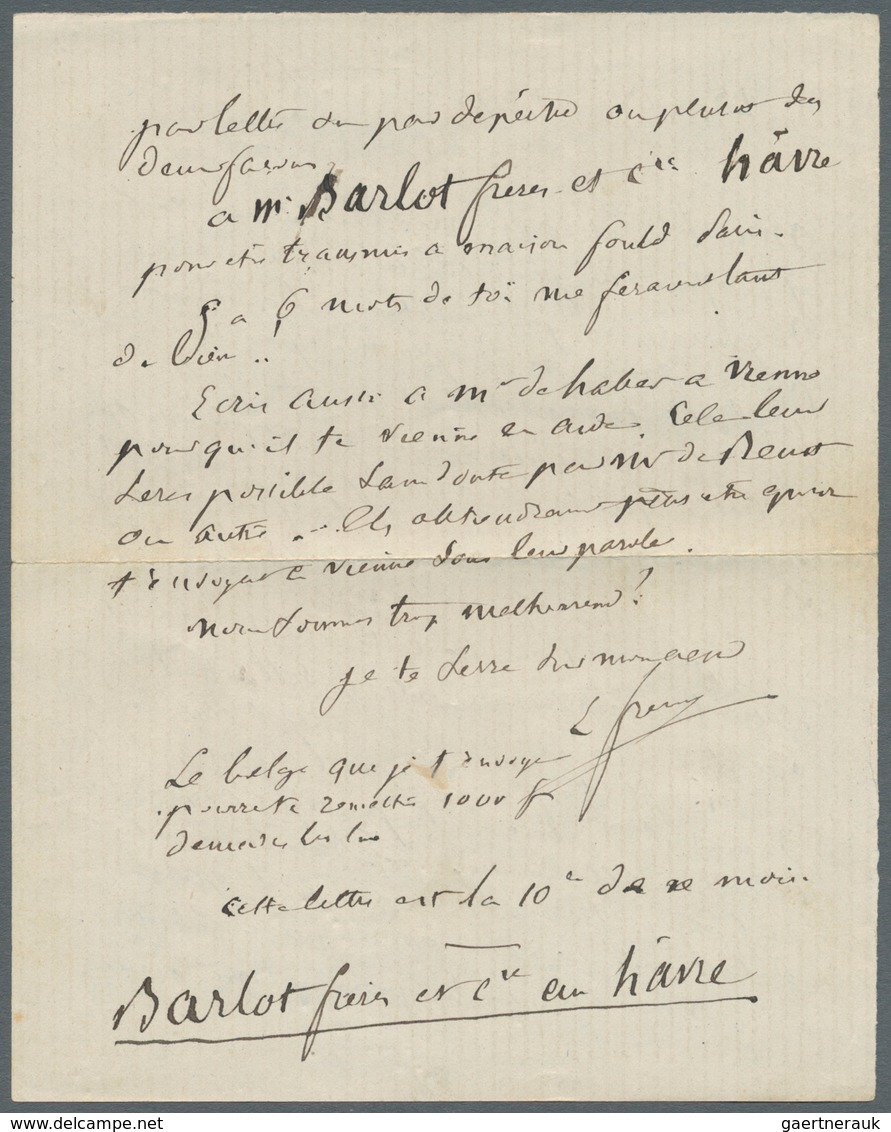 par lettre ou par depeche ou plutot des
deux facons
a Mr. Barlot freres et Cie hâvre
pour etre transmis a maison fould Paris.
5 a 6 mots de toi me feraient tant
de bien !!
Ecris aussi a Mr de haber a Vienne
pour qu'il te vienne en aide. Cela leur
sera possible sans doute par Mr de Beust
ou autre ... Ils obtiendraient peut etre qu'on
t'envoyat a Vienne sous leur parole.
nous sommes trop malheureux !
je te serre sur mon coeur
L fremy
Le belge que je t'envoye
pourra te remettre 1000 f
demande les lui
cette lettre est la 10e de ce mois.
Barlot freres et Cie au hâvre
gaertnerauk